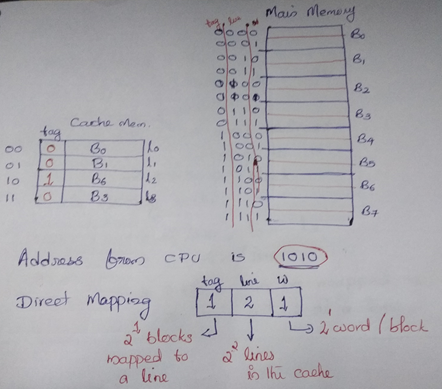 Main Memory
tag line w
0 0 0 0 B0
0 0 0 1
0 0 1 0 B1
0 0 1 1
0 1 0 0 B2
0 1 0 1
0 1 1 0 B3
0 1 1 1
1 0 0 0 B4
1 0 0 1
1 0 1 0 B5
1 0 1 1
1 1 0 0 B6
1 1 0 1
1 1 1 0 B7
1 1 1 1
Cache Mem.
tag
00 0 B0 L0
01 0 B1 L1
10 1 B6 L2
11 0 B3 L3
Address from CPU is 1010
tag line w
Direct Mapping 1 2 1
2^1 blocks mapped to a line
2^2 lines in the cache
2^1 word / block